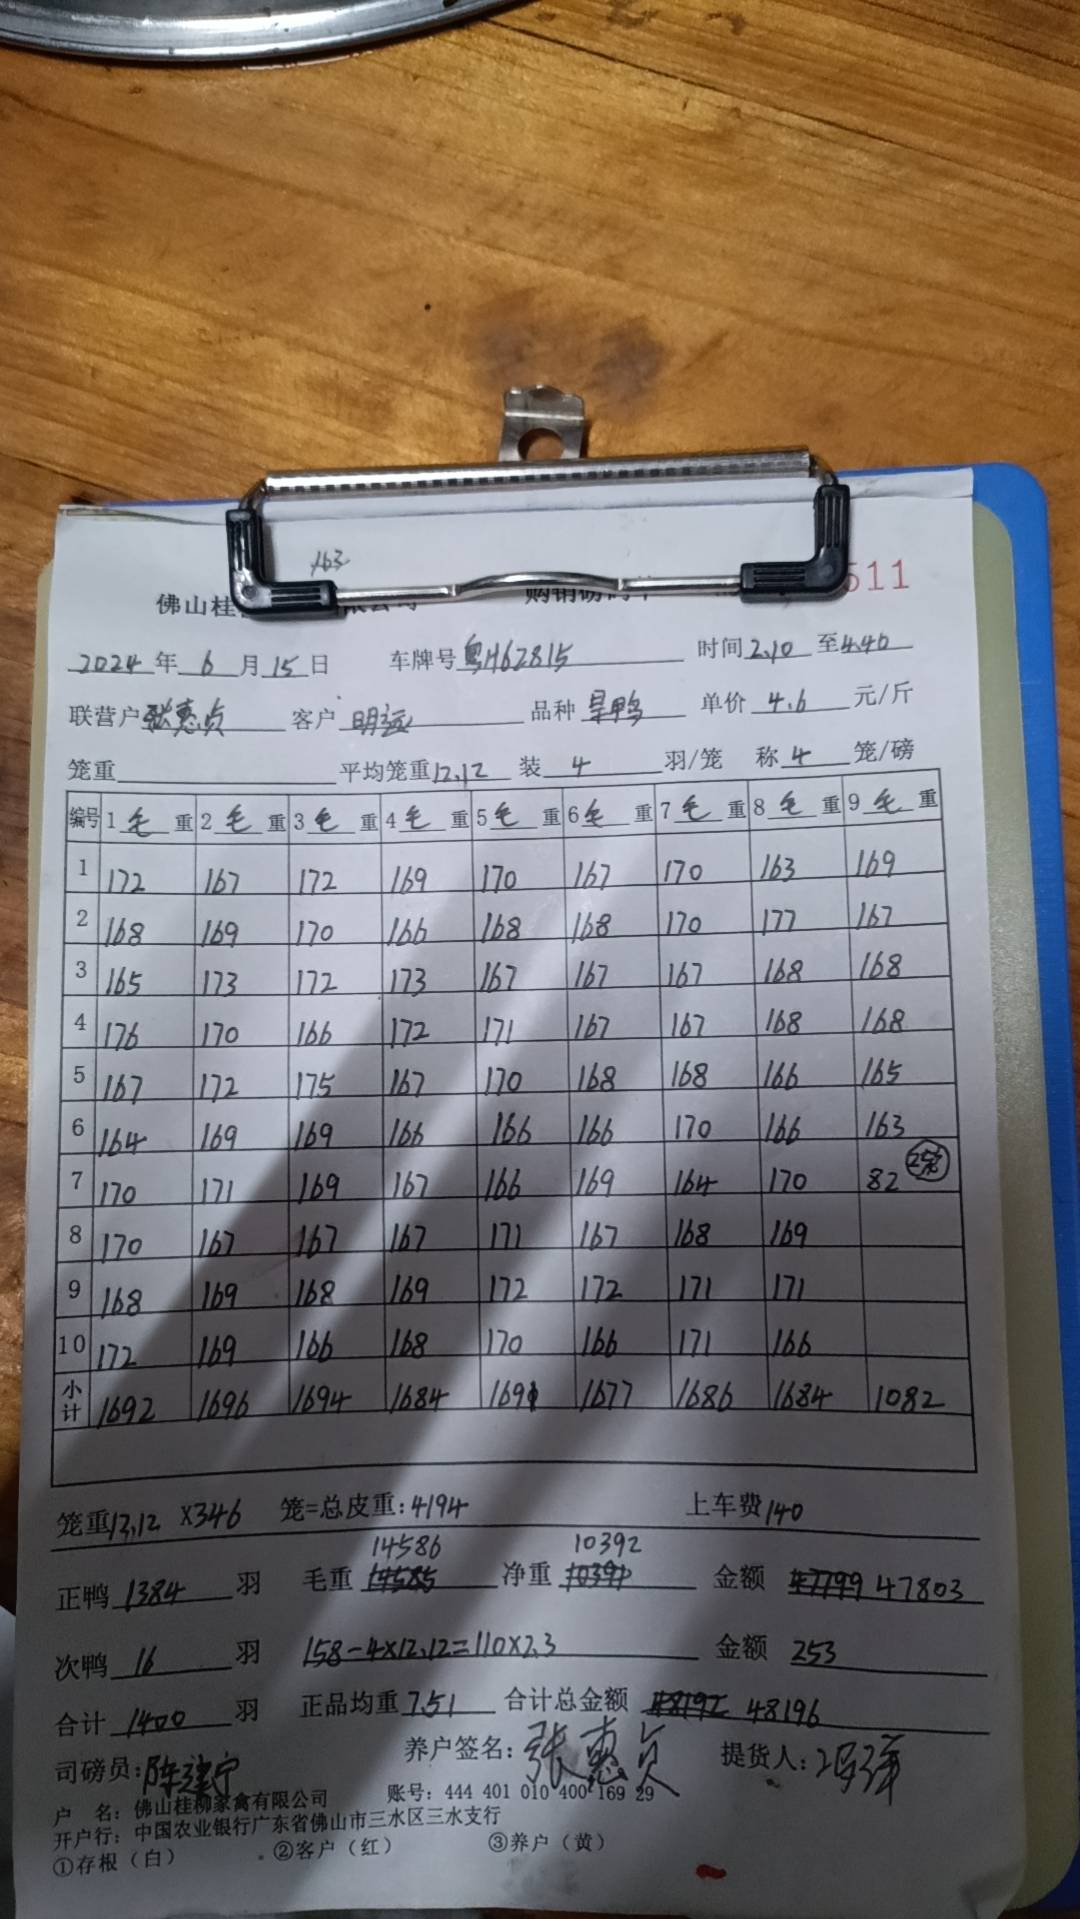 163
佛山桂 购销磅码单 511
2024年6月15日 车牌号粤H62815 时间2.10至4.40
联营户张惠贞 客户明远 品种旱鸭 单价4.6元/斤
笼重 平均笼重12.12 装4羽/笼 称4笼/磅
编号 1毛重 2毛重 3毛重 4毛重 5毛重 6毛重 7毛重 8毛重 9毛重
1 172 167 172 169 170 167 170 163 169
2 168 169 170 166 168 168 170 177 167
3 165 173 172 173 167 167 167 168 168
4 176 170 166 172 171 167 167 168 168
5 167 172 175 167 170 168 168 166 165
6 164 169 169 166 166 166 170 166 163
7 170 171 169 167 166 169 164 170 82
8 170 167 167 167 171 167 168 169
9 168 169 168 169 172 172 171 171
10 172 169 166 168 170 166 171 166
小计 1692 1696 1694 1684 1691 1677 1686 1684 1082
笼重12.12 X346 笼=总皮重:4194 上车费140
14586 10392
正鸭1384羽 毛重14585 净重10391 金额47799 47803
次鸭16羽 158-4×12.12=110×2.3 金额253
合计1400羽 正品均重7.51 合计总金额48192 48196
司磅员:陈建宁 养户签名:张惠贞 提货人:
户 名:佛山桂柳家禽有限公司 账号:444 401 010 400 169 29
开户行:中国农业银行广东省佛山市三水区三水支行
①存根(白) ②客户(红) ③养户(黄)